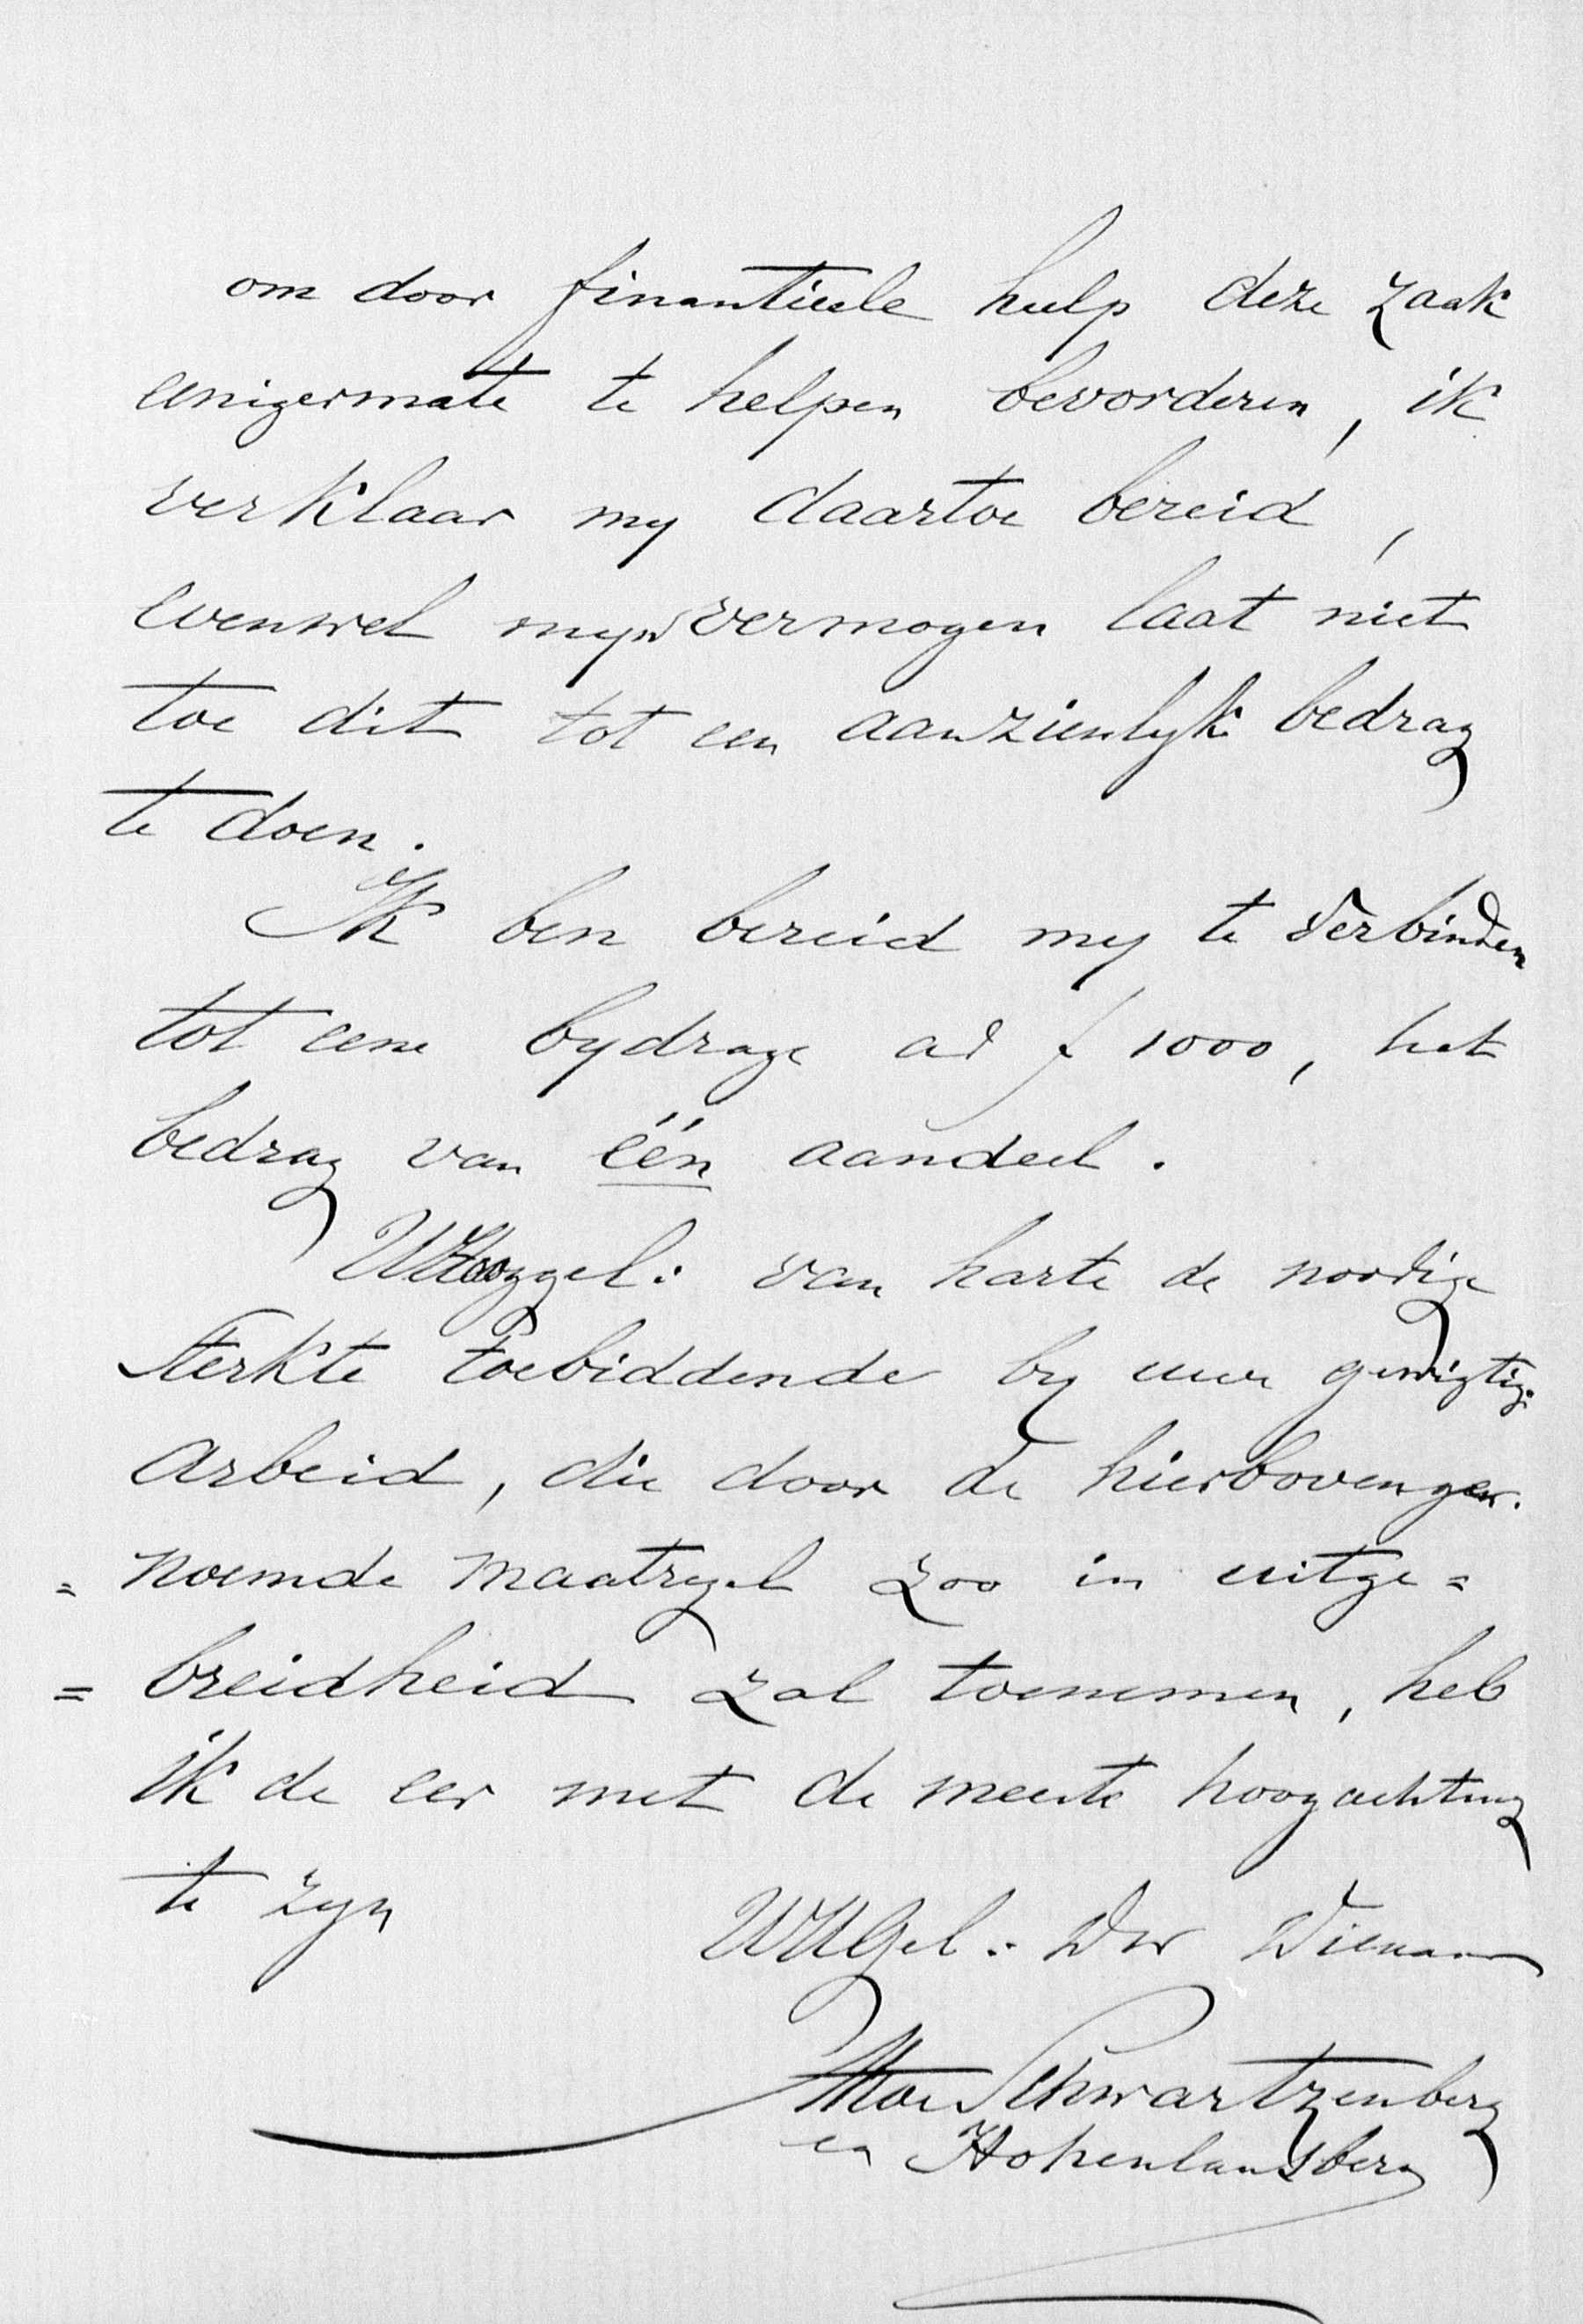 om door finantieele hulp deze zaak
eenigermate te helpen bevorderen, ik
verklaar my daartoe bereid,
evenwel myn vermogen laat niet
toe dit tot een aanzienlyk bedrag
te doen.
Ik ben bereid my te verbinden
tot eene bydrage ad f 1000, het
bedrag van één aandeel.
van harte de nodige
sterkte toebiddende by uwe gewigtige
arbeid, die door de hierbovenge
= noemde maatregel zoo in uitge=
= breidheid zal toenemen, heb
ik de eer met de meeste hoogachting
te zyn
UWGel: Dw Dienaar
Schwartzenberg
en Hohenlansberg